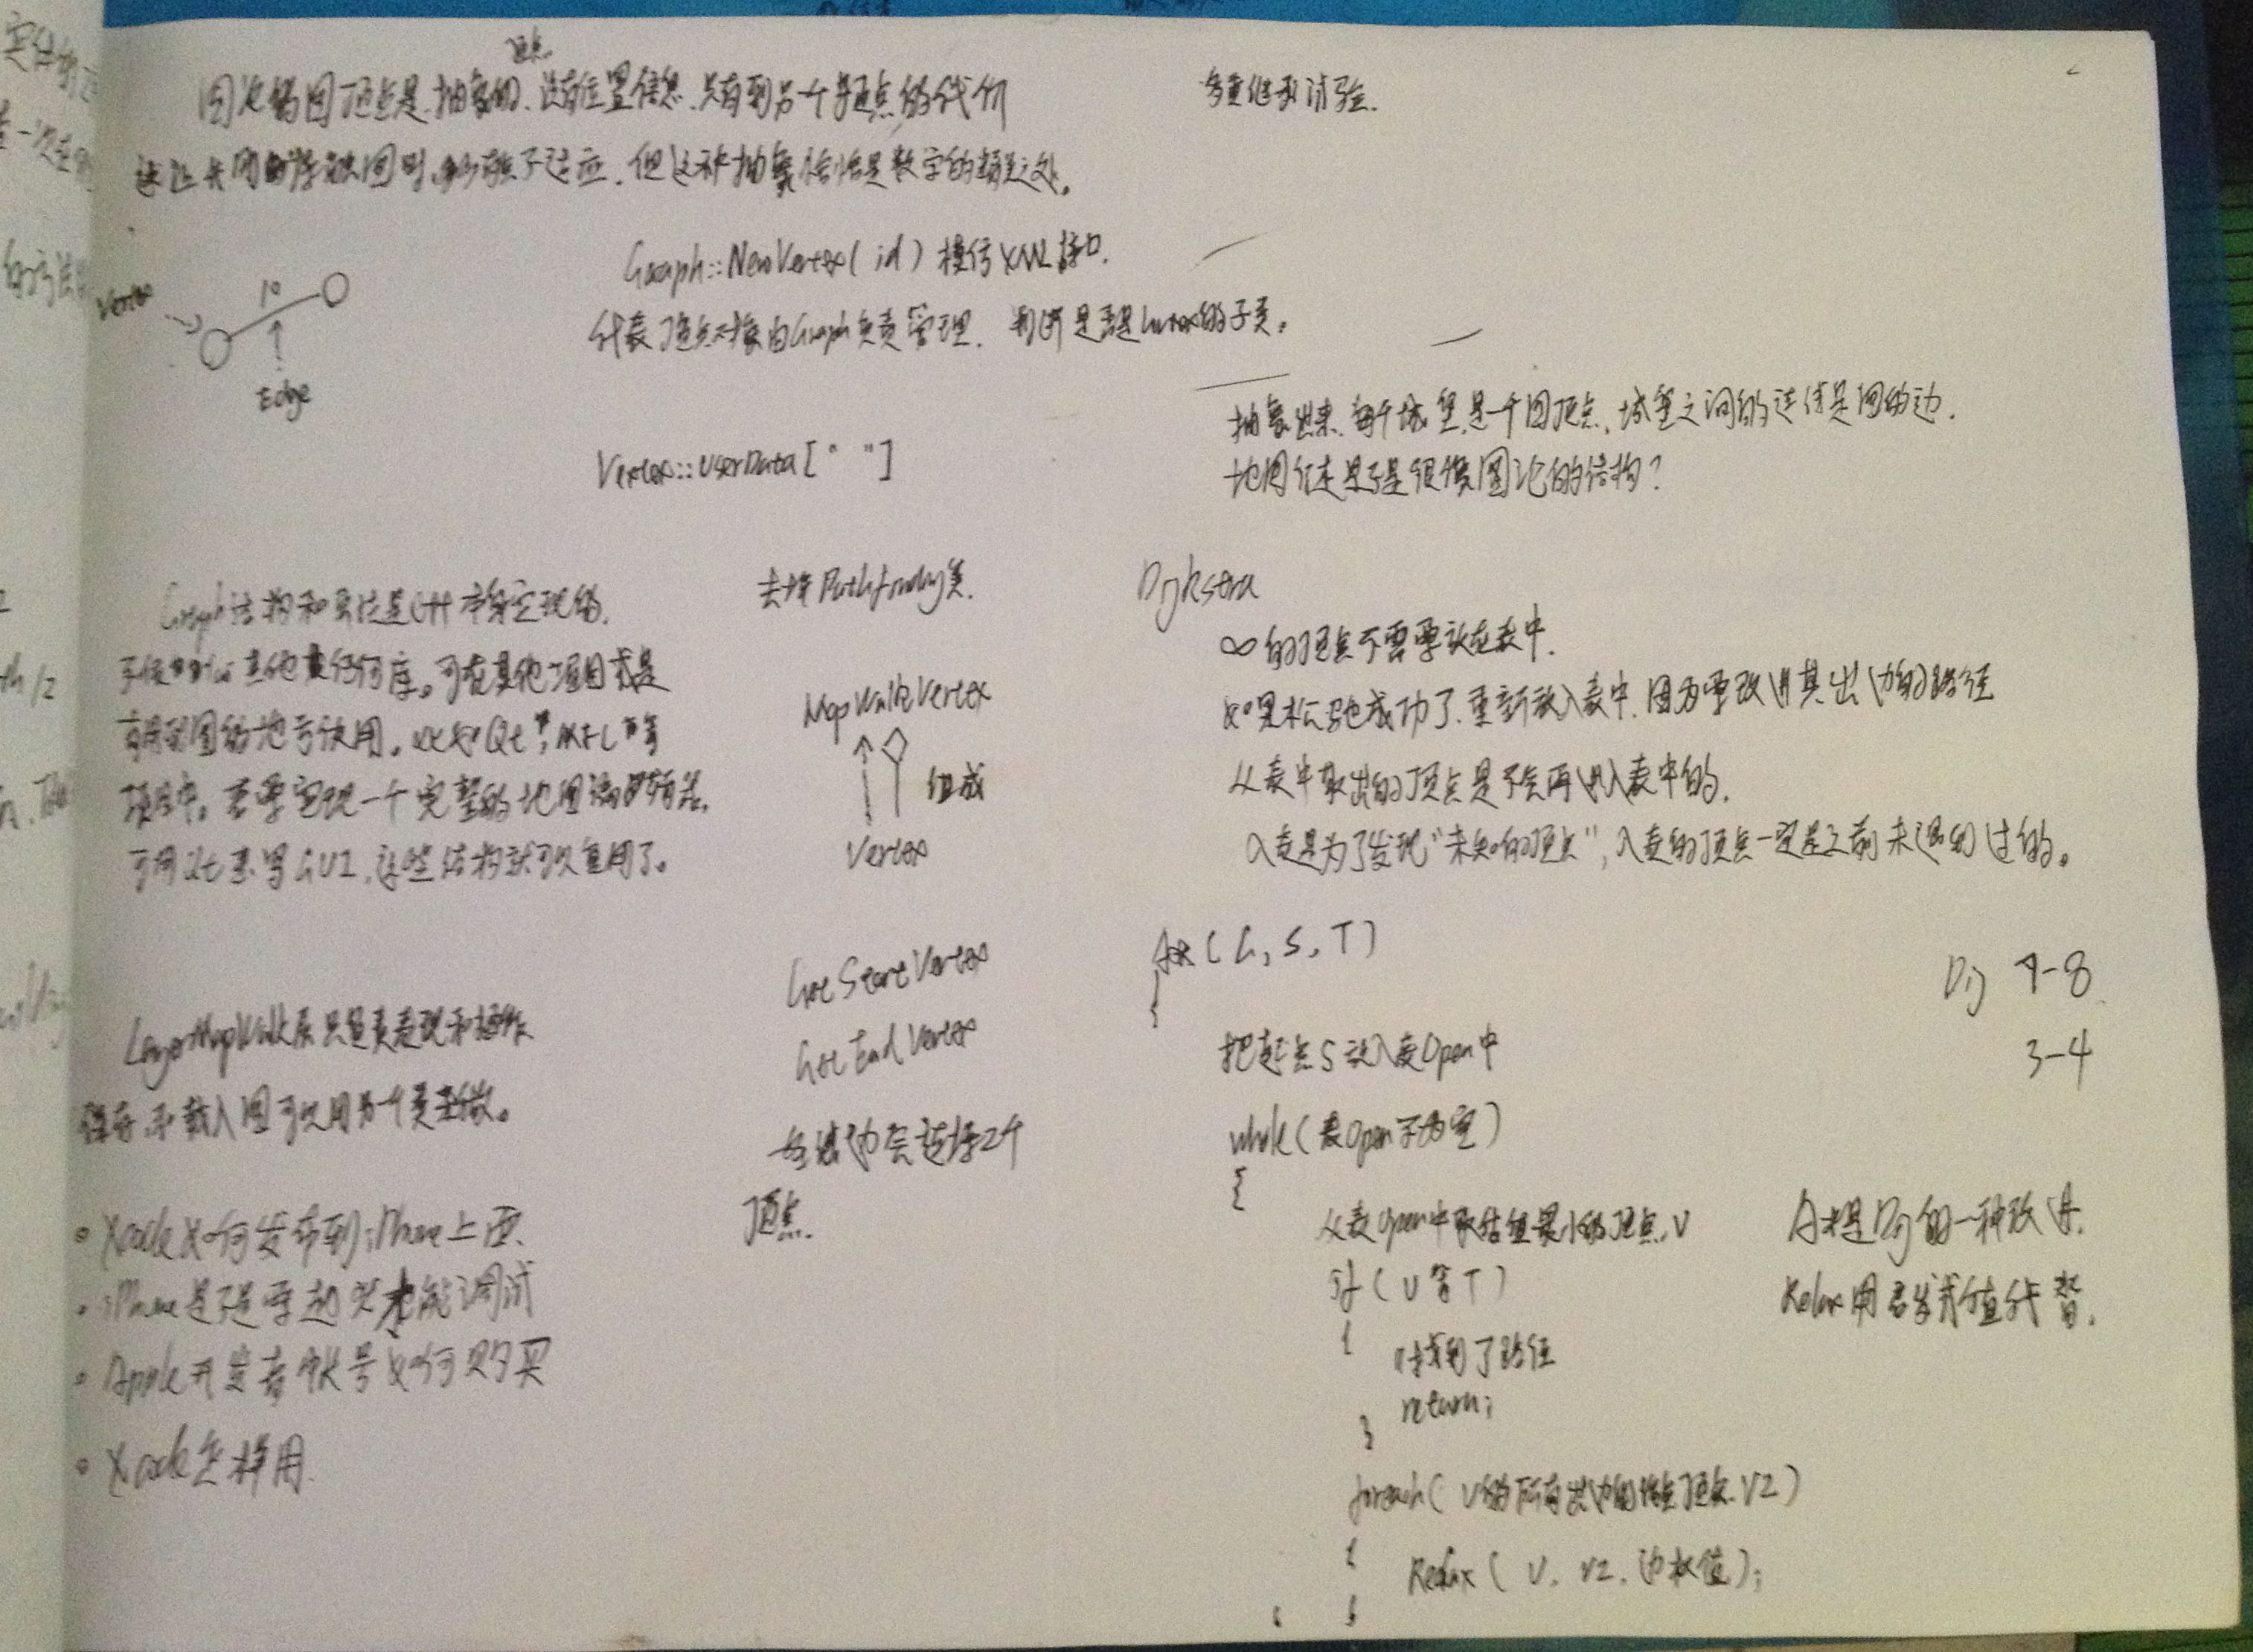 图论的图顶点是抽象的、没有位置信息、只有到另一个顶点的代价
顶点
让我们在学习图时, 不适应、但这种抽象恰恰是数学的精美之处。
Vertex
10
Edge
Graph::NewVertex( id ) 模仿XML接口.
代表顶点对象由Graph负责管理. 判断是否是Vertex的子类。
Vertex::UserData[" "]
Graph结构和算法是C++本身实现的.
其他任何库。可在其他项目或是
有用到图的地方使用。比如Qt, MFC等
项目中。若要实现一个完整的地图编辑器.
可用Qt来写GUI, 这些结构就可以复用了。
去掉Pathfinding类.
MapWalkVertex
组成
Vertex
LayerMapWalk层只负责表现和操作
保存和载入图可以用另一个类来做。
GetStartVertex
GetEndVertex
每条边会连接2个
顶点.
• Xcode如何发布到iPhone上面.
• iPhone是不是要越狱才能调试
• Apple开发者帐号如何购买
• Xcode怎样用.
多重继承试验.
抽象出来, 每个城堡是一个图顶点, 城堡之间的连线是图的边.
地图信息是不是很像图论的结构?
Dijkstra
∞的顶点不需要放在表中.
如果松弛成功了, 重新放入表中, 因为要改进其出边的路径
从表中取出的顶点是不会再进入表中的.
入表是为了发现"未知的顶点", 入表的顶点一定是之前未遇到过的。
A*( G, S, T )
{
把起点S放入表Open中
while(表Open不为空)
{
从表Open中取估值最小的顶点V
if ( V等T )
{
//找到了路径
return;
}
foreach( V的所有出边的终点顶点 V2 )
{
Relax ( V, V2, 边权值 );
}
Dij 7-8
3-4
A*是Dij的一种改进.
Relax用启发式值代替.